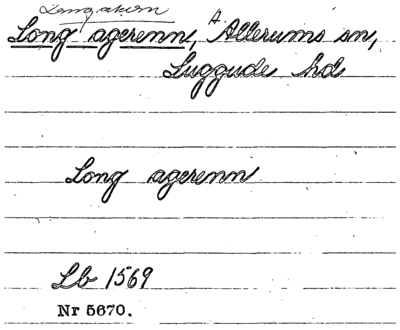 Long agerenn, Allerums sn,
Luggude hd
Long agerenn
Lb 1569
Nr 5670.